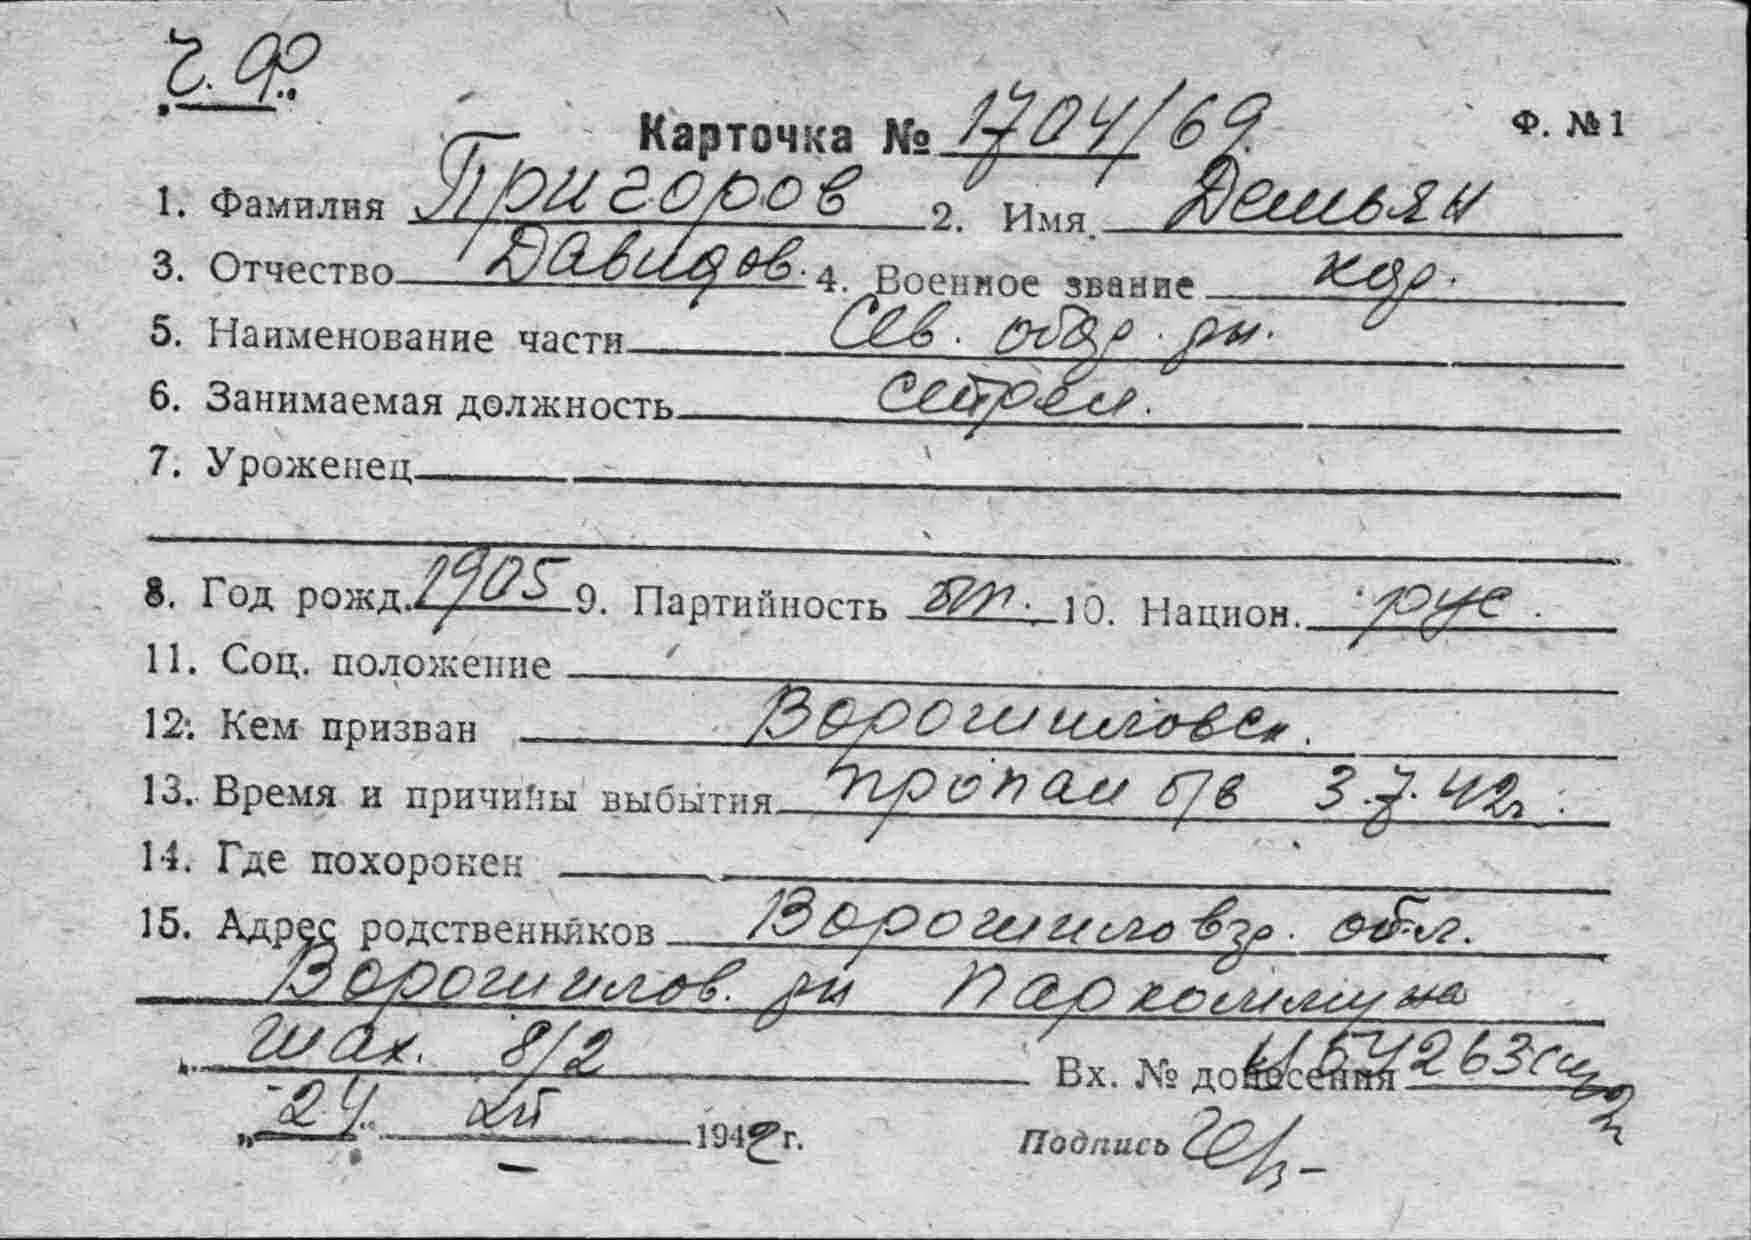 Ч. Ф.
Карточка № 1704/69 Ф. № 1
1. Фамилия Пригоров 2. Имя Демьян
3. Отчество Давидов. 4. Военное звание кр.
5. Наименование части Сев. обор. рн.
6. Занимаемая должность стрел.
7. Уроженец
8. Год рожд. 1905 9. Партийность бп. 10. Национ. рус.
11. Соц. положение
12. Кем призван Ворошиловск.
13. Время и причины выбытия пропал б/в 3.7.42г.
14. Где похоронен
15. Адрес родственников Ворошиловгр. обл.
Ворошилов. рн Паркоммуна
шах. 8/2
Вх. № донесения 54263
"24" XII 1942 г. Подпись